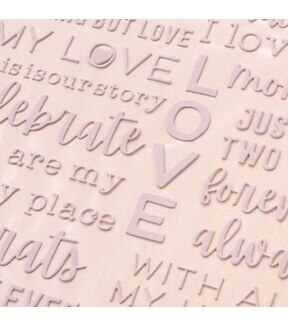 BUT LOVE
MY LOVE
is is our story
celebrate
are my
place
LOVE
I lov
JUS
TWO
forev
alwa
WITH AL
MY